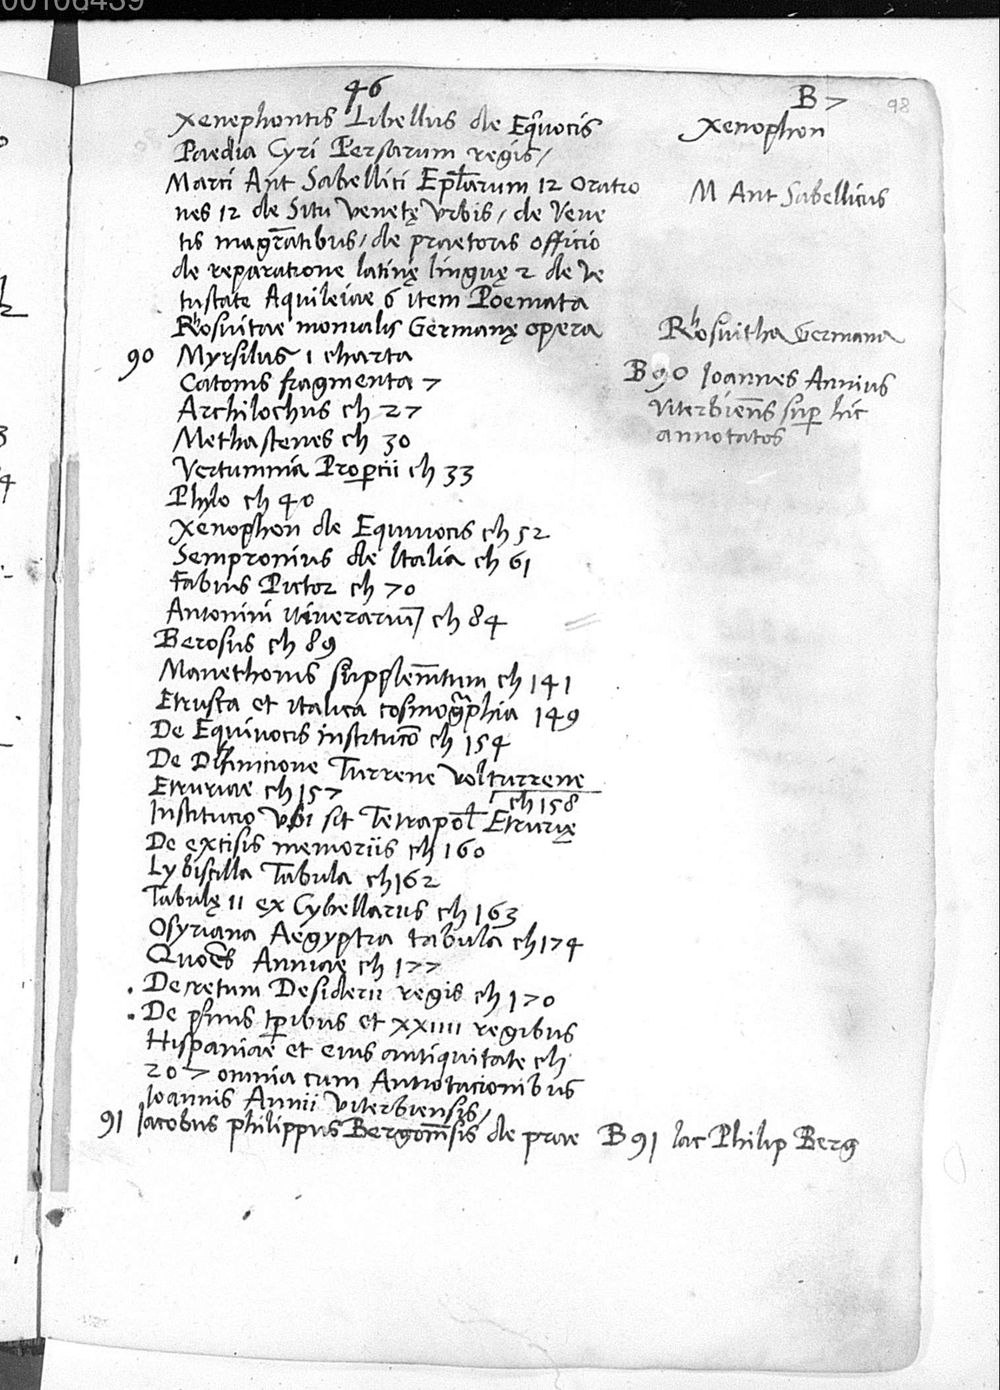 00106439
46
B 7
98
Xenephontis Libellus de Equocis
Xenophon
Paedia Cyri Persarum regis/
Marci Ant Sabellici Eplarum 12 Oratio
M Ant Sabellicus
nes 12 de Situ Venetę Vrbis / de Vene
tis magratibus / de praetoris officio
de reparatione latinę linguę 2 de Ve
tustate Aquileiae 6 item Poemata
Rhosuitae monialis Germanę opera
Rhosuitha Germana
90 Myrsilus 1 charta
B 90 Ioannes Annius
Catonis fragmenta 7
Viterbiens sup hic
Archilochus ch 27
annotatos
Methastenes ch 30
Vertumnia Propertii ch 33
Phylo ch 40
Xenophon de Equivocis ch 52
Sempronius de Italia ch 61
Fabius Pictor ch 70
Antonini itinerarium / ch 84
Berosus ch 89
Manethonis supplemtum ch 141
Etrusca et italica cosmographia 149
De Equivocis institutio ch 154
De Difinicione Turrene Volturrene
Etruriae ch 157
ch 158
Institucio Vbi sit Tetrapol Etrurię
De excisis memoriis ch 160
Lybiscilla Tabula ch 162
Tabulę 11 ex Cybellarus ch 163
Osyriana Aegyptia tabula ch 174
Quoes Anniae ch 177
. Decretum Desiderii regis ch 170
. De primis tpribus et XXIIII regibus
Hispaniae et eius antiquitate ch
207 omnia cum Annotacionibus
Ioannis Annii Viterbiensis/
91 Iacobus philippus Bergomsis de prae
B 91 Iac Philip Berg